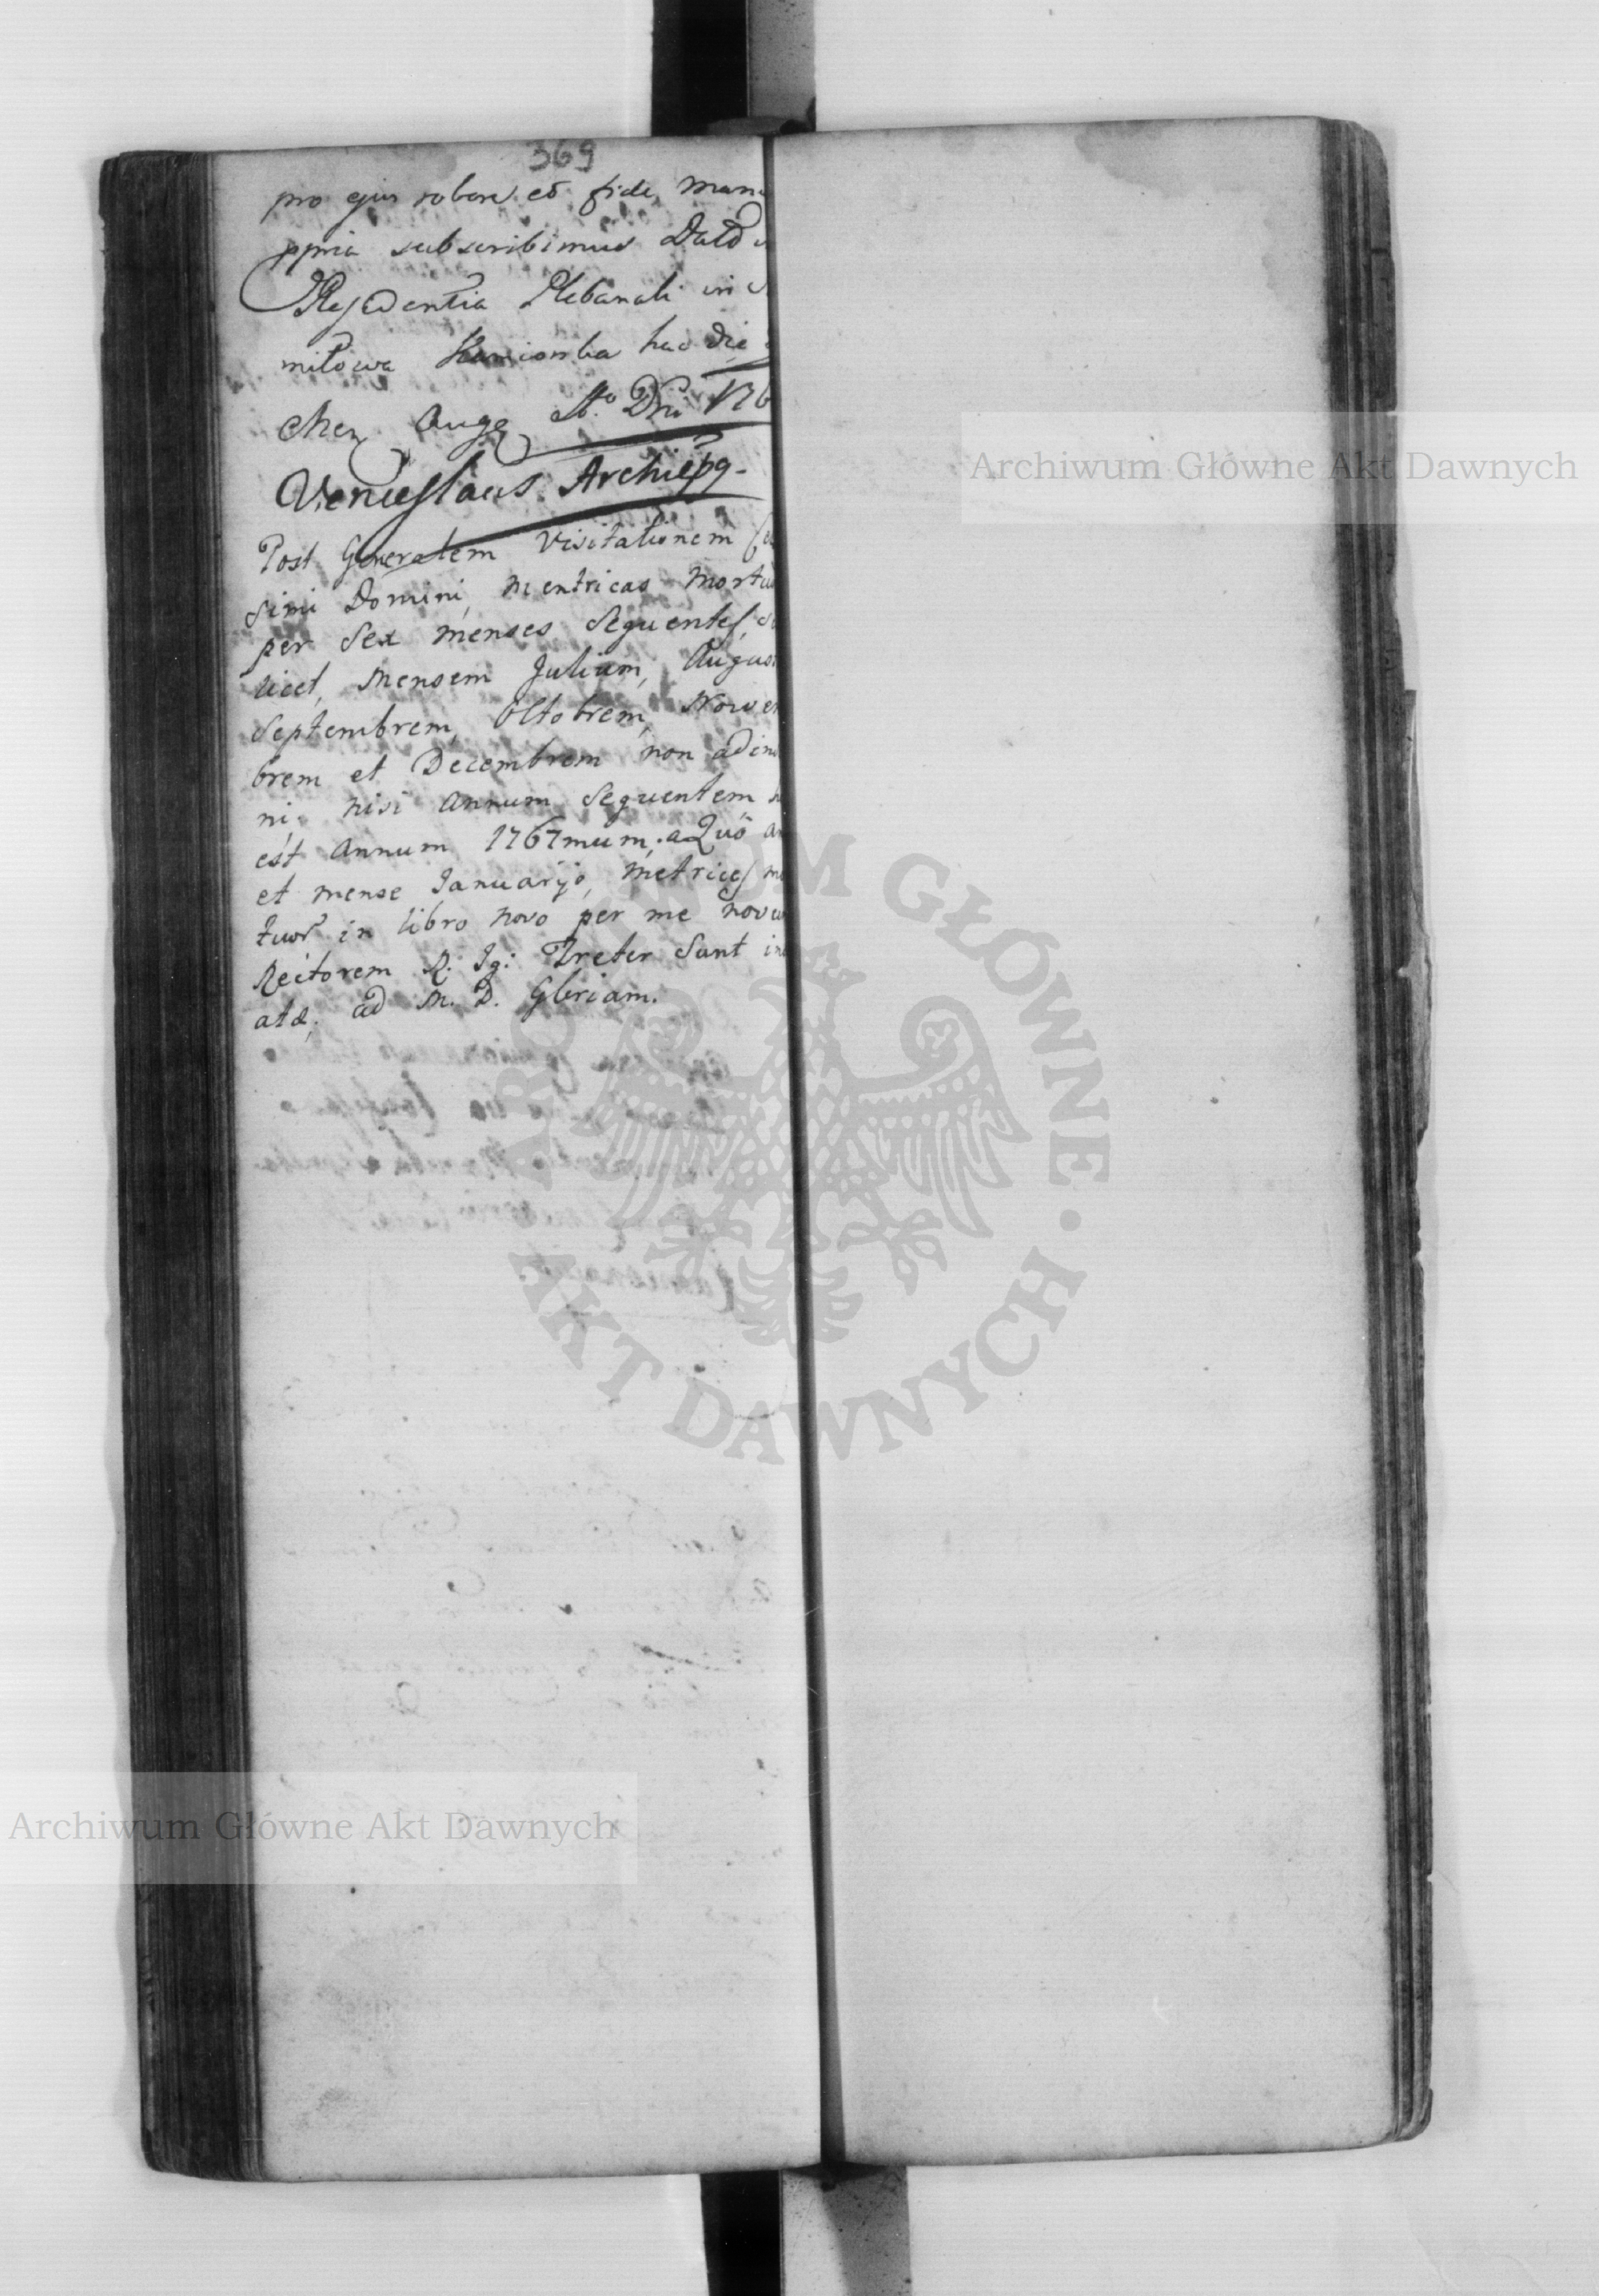 369
pro ejus robore et fide, manu
ppria subscribimus Datd
Residentia Plebanali in
miłowa Kamionka hac die
Men Augg Ao. Dni 176
Venceslaus Archiepq.
Post Generalem Visitationem
simi Domini, Mentricas Mortu
per Sex menses Sequentes, S
licet, Mensem Julium, Augus
Septembrem, Octobrem, Novem
brem et Decembrem non adin
ni, nisi Annum Sequentem
est Annum 1767mum. a Quo an
et mense Januarÿo, Metrices mo
tuor in libro novo per me novum
Rectorem R. Ig: Treter Sunt in
atæ, ad M. D. Glriam.
Archiwum Główne Akt Dawnych
ARCHIWUM GŁÓWNE · AKT DAWNYCH ·
Archiwum Główne Akt Dawnych